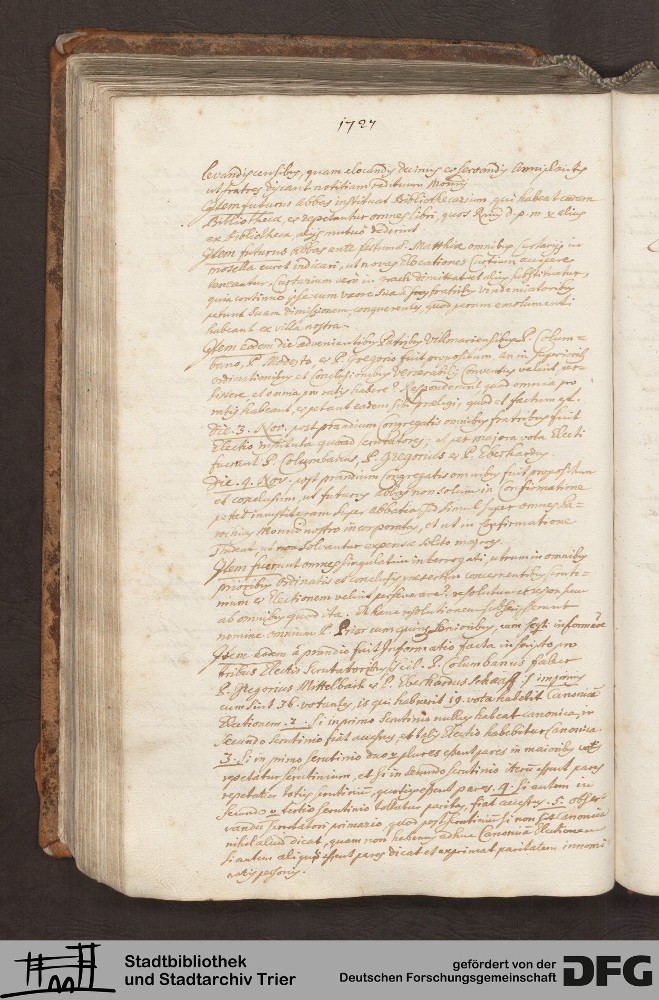 1727
levandis censibus, quam elocandis decimis et servandis
ut fratres discant notitiam redituum
Item futurus Abbas instituat Bibliothecarium, qui habeat curam
Bibliothecæ, et repetantur omnes libri, quos
ex bibliotheca, aliis mutuo dederint
Item futurus Abbas ante festum S. Matthiæ omnibus in
mosella curet indicari, ut novas Elocationes
teneantur,
quia continuo
petunt suam dimissionem,
habeant ex villa nostra.
Item eadem die advenientibus Patribus Villmariensibus P. Colum=
bano, P. Modesto, et P. Gregorio fuit propositum, an in
ordinationibus et Conclusionibus Venerabilis Conventus velint
et omnia pro ratis habere? Responderunt quod omnia pro
ratis habeant, et petant eadem sibi prælegi, quod et factum est.
Die. 3. Nov. post prandium Congregatis omnibus fratribus fuit
Electio instituta quoad scrutatores, et per majora vota Electi
fuerunt P. Columbanus, P. Gregorius et P. Eberhardus.
Die. 4. Nov. post prandium Congregatis omnibus fuit propositum
et conclusum, ut futurus Abbas non solum in Confirmatione
petat super abbatia sed simul super omnes
nostro incorporatas, et ut in Confirmatione
ut non solvantur expensæ solito majores.
Item fuerunt omnes singulatim interrogati, utrum in omnibus
prioribus Ordinatis et conclusis
et Electionem velint resolutum et responsum
ab omnibus quod ita.
nomine omnium P. Prior cum quinque Senioribus,
Item eadem à prandio fuit Informatio facta in scripto pro
tribus Electis Scrutatoribus scil. P. Columbanus Faber
P. Gregorius Mittelbach et P. Eberhardus Schaaff.
cum sint 36. votantes, is qui habuerit 19. vota habebit Canonicam
Electionem. 2. Si in primo scrutinio nullus habeat canonicam, in
secundo scrutinio fiat accessus, et talis Electio habebitur canonica.
3. Si in primo scrutinio duo vel plures essent pares in maioribus votis
repetatur scrutinium, et si in secundo scrutinio iterum essent pares
repetatur toties scrutinium, quoties essent pares. 4. Si autem in
secundo vel tertio scrutinio tollatur paritas, fiat accessus. 5.
scrutatori primario, quod post scrutinium si non sit canonica
nihil aliud dicat, quam non habemus adhuc Canonicam Electionem
si autem aliqui essent pares dicat et exprimat paritatem
personis.
Stadtbibliothek
und Stadtarchiv Trier
gefördert von der
Deutschen Forschungsgemeinschaft
DFG